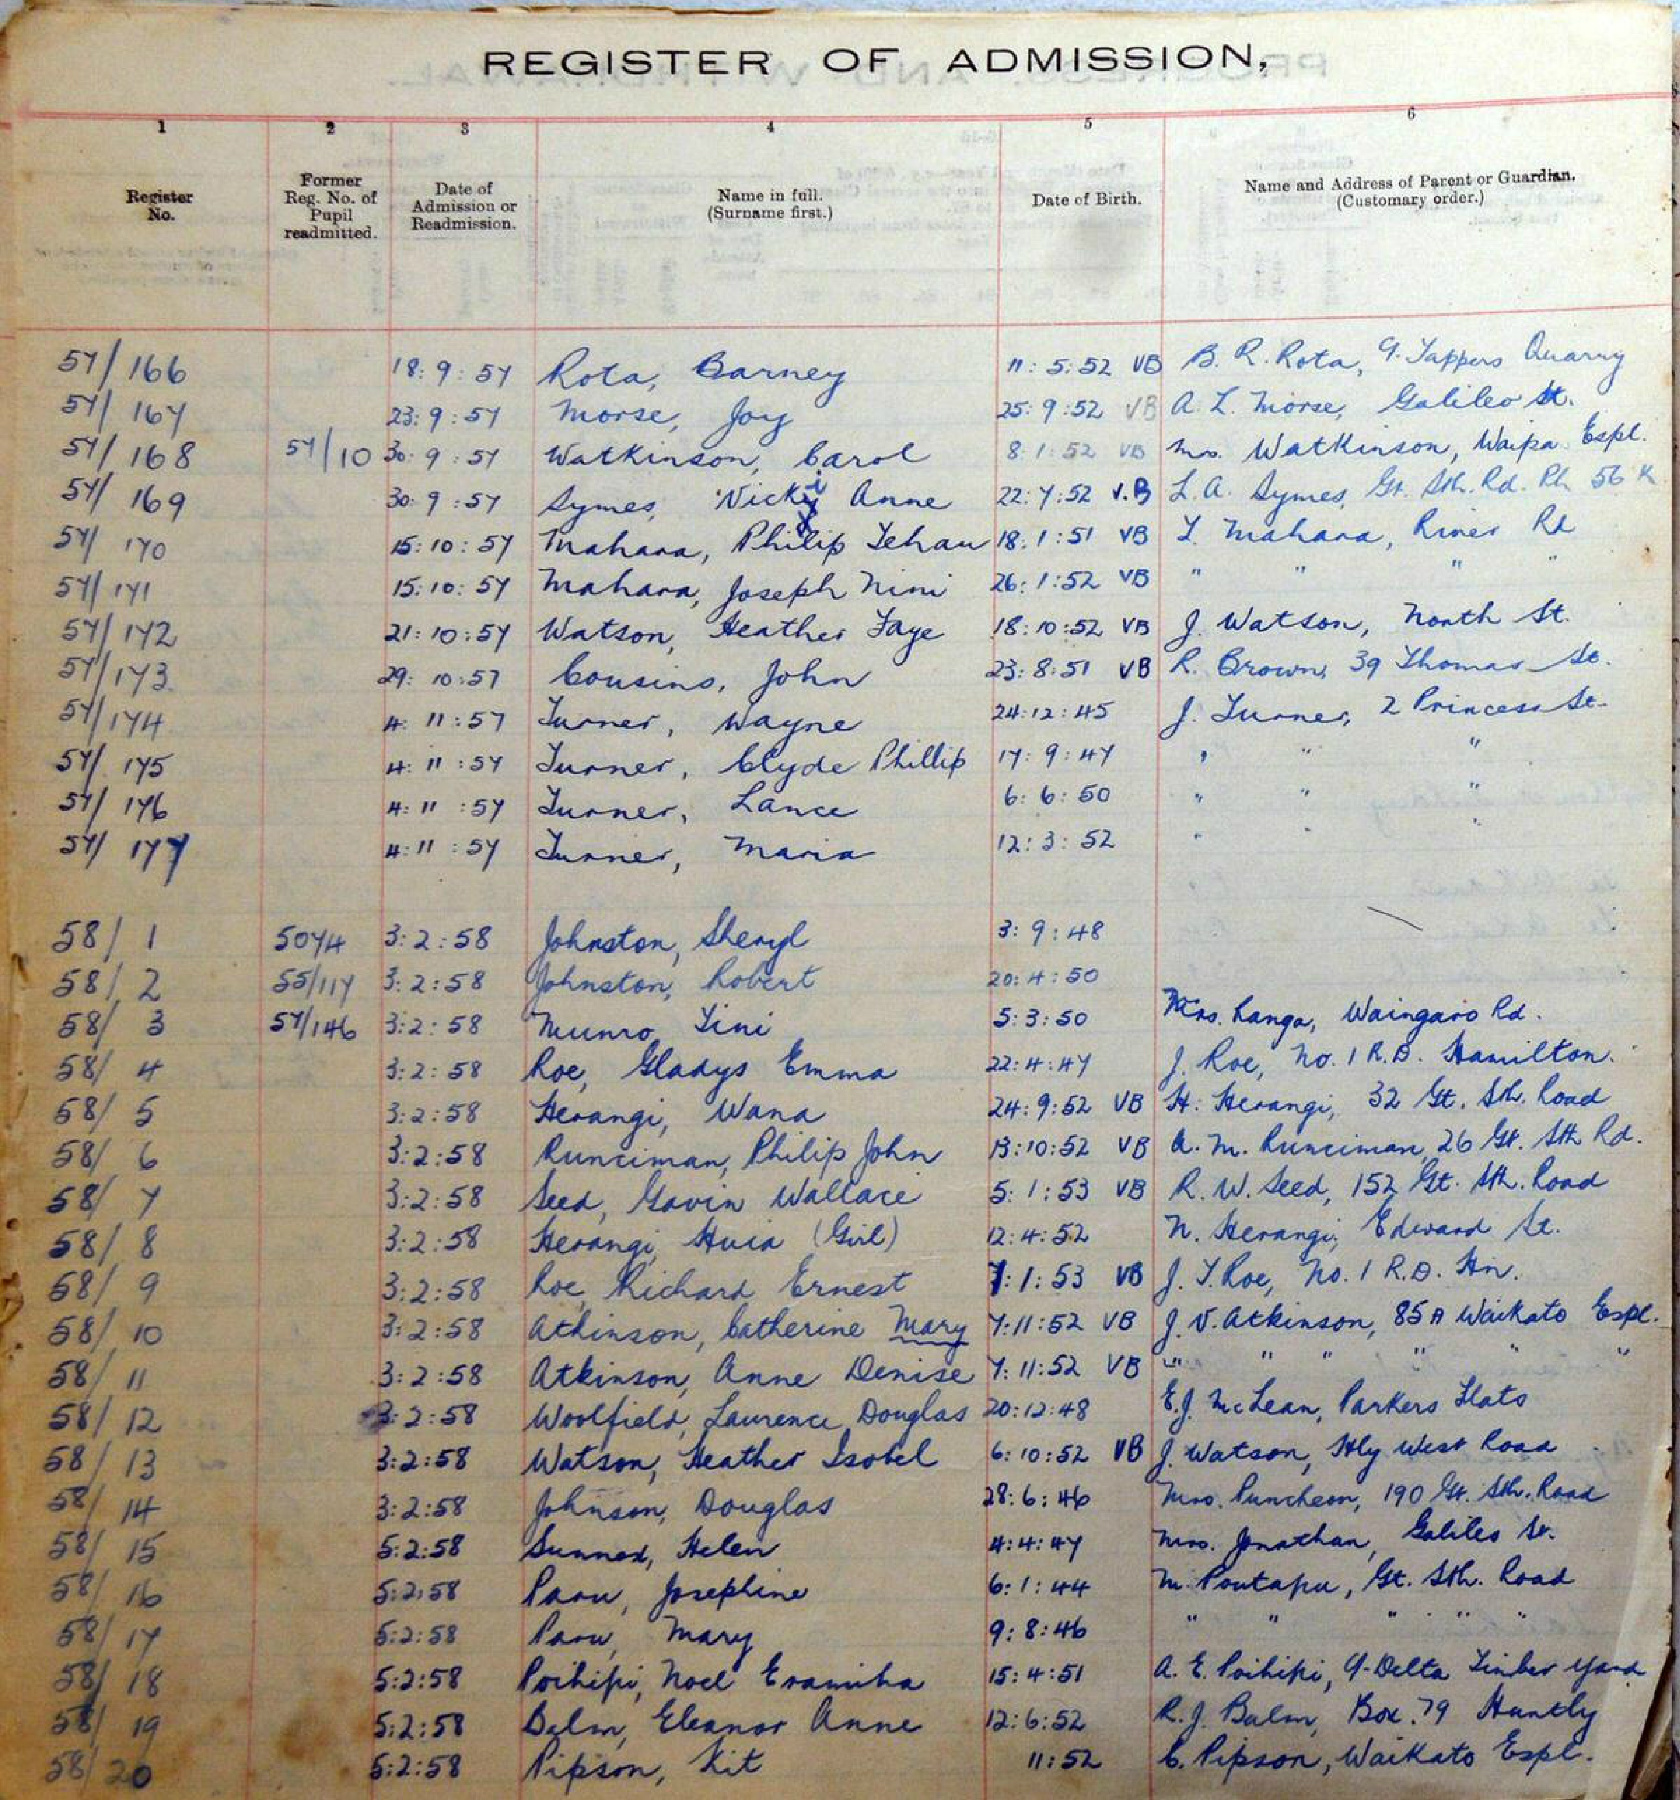 REGISTER OF ADMISSION,
1 2 3 4 5 6
Register No. Former Reg. No. of Pupil readmitted. Date of Admission or Readmission. Name in full. (Surname first.) Date of Birth. Name and Address of Parent or Guardian. (Customary order.)
57/166 18:9:57 Rota, Barney 11:5:52 VB B. R. Rota, 9. Tappers Quarry
57/167 23:9:57 Morse, Joy 25:9:52 VB A. L. Morse, Galileo St.
57/168 57/10 30:9:57 Watkinson, Carol 8:1:52 VB Mrs. Watkinson, Waipa Espl.
57/169 30:9:57 Symes, Nicki Anne 22:7:52 V.B L. A. Symes, Gt. Sth. Rd. Ph 56 K
57/170 15:10:57 Mahara, Philip Tehau 18:1:51 VB T. Mahara, River Rd
57/171 15:10:57 Mahara, Joseph Nini 26:1:52 VB " " " "
57/172 21:10:57 Watson, Heather Faye 18:10:52 VB J. Watson, North St.
57/173 29:10:57 Cousins, John 23:8:51 VB R. Brown, 39 Thomas St.
57/174 4:11:57 Turner, Wayne 24:12:45 J. Turner, 2 Princess St.
57/175 4:11:57 Turner, Clyde Phillip 17:9:47 " " "
57/176 4:11:57 Turner, Lance 6:6:50 " " "
57/177 4:11:57 Turner, Maria 12:3:52 " " "
58/1 5074 3:2:58 Johnston, Sheryl 3:9:48
58/2 55/117 3:2:58 Johnston, Robert 20:4:50
58/3 57/146 3:2:58 Munro, Tini 5:3:50 Mrs. Ranga, Waingaro Rd.
58/4 3:2:58 Roe, Gladys Emma 22:4:47 J. Roe, No. 1 R.D. Hamilton.
58/5 3:2:58 Herangi, Wana 24:9:52 VB H. Herangi, 32 Gt. Sth. Road
58/6 3:2:58 Runciman, Philip John 13:10:52 VB A. M. Runciman, 26 Gt. Sth Rd.
58/7 3:2:58 Seed, Gavin Wallace 5:1:53 VB R. W. Seed, 152 Gt. Sth. Road
58/8 3:2:58 Herangi, Huia (Girl) 12:4:52 N. Herangi, Edward St.
58/9 3:2:58 Roe, Richard Ernest 7:1:53 VB J. T. Roe, No. 1 R.D. Hn.
58/10 3:2:58 Atkinson, Catherine Mary 7:11:52 VB J. V. Atkinson, 85A Waikato Espl.
58/11 3:2:58 Atkinson, Anne Denise 7:11:52 VB " " " " " "
58/12 3:2:58 Woolfield, Laurence Douglas 20:12:48 E.J. McLean, Parkers Flats
58/13 3:2:58 Watson, Heather Isobel 6:10:52 VB J. Watson, Htly West Road
58/14 3:2:58 Johnson, Douglas 28:6:46 Mrs. Puncheon, 190 Gt. Sth. Road
58/15 5:2:58 Sunnex, Helen 4:4:47 Mrs. Jonathan, Galileo St.
58/16 5:2:58 Paru, Josephine 6:1:44 M. Poutapu, Gt. Sth. Road
58/17 5:2:58 Paru, Mary 9:8:46 " " " " "
58/18 5:2:58 Poihipi, Noel Eramiha 15:4:51 A. E. Poihipi, 9-Delta Timber Yard
58/19 5:2:58 Balm, Eleanor Anne 12:6:52 R. J. Balm, Box. 79 Huntly
58/20 5:2:58 Pipson, Kit 11:52 C. Pipson, Waikato Espl.